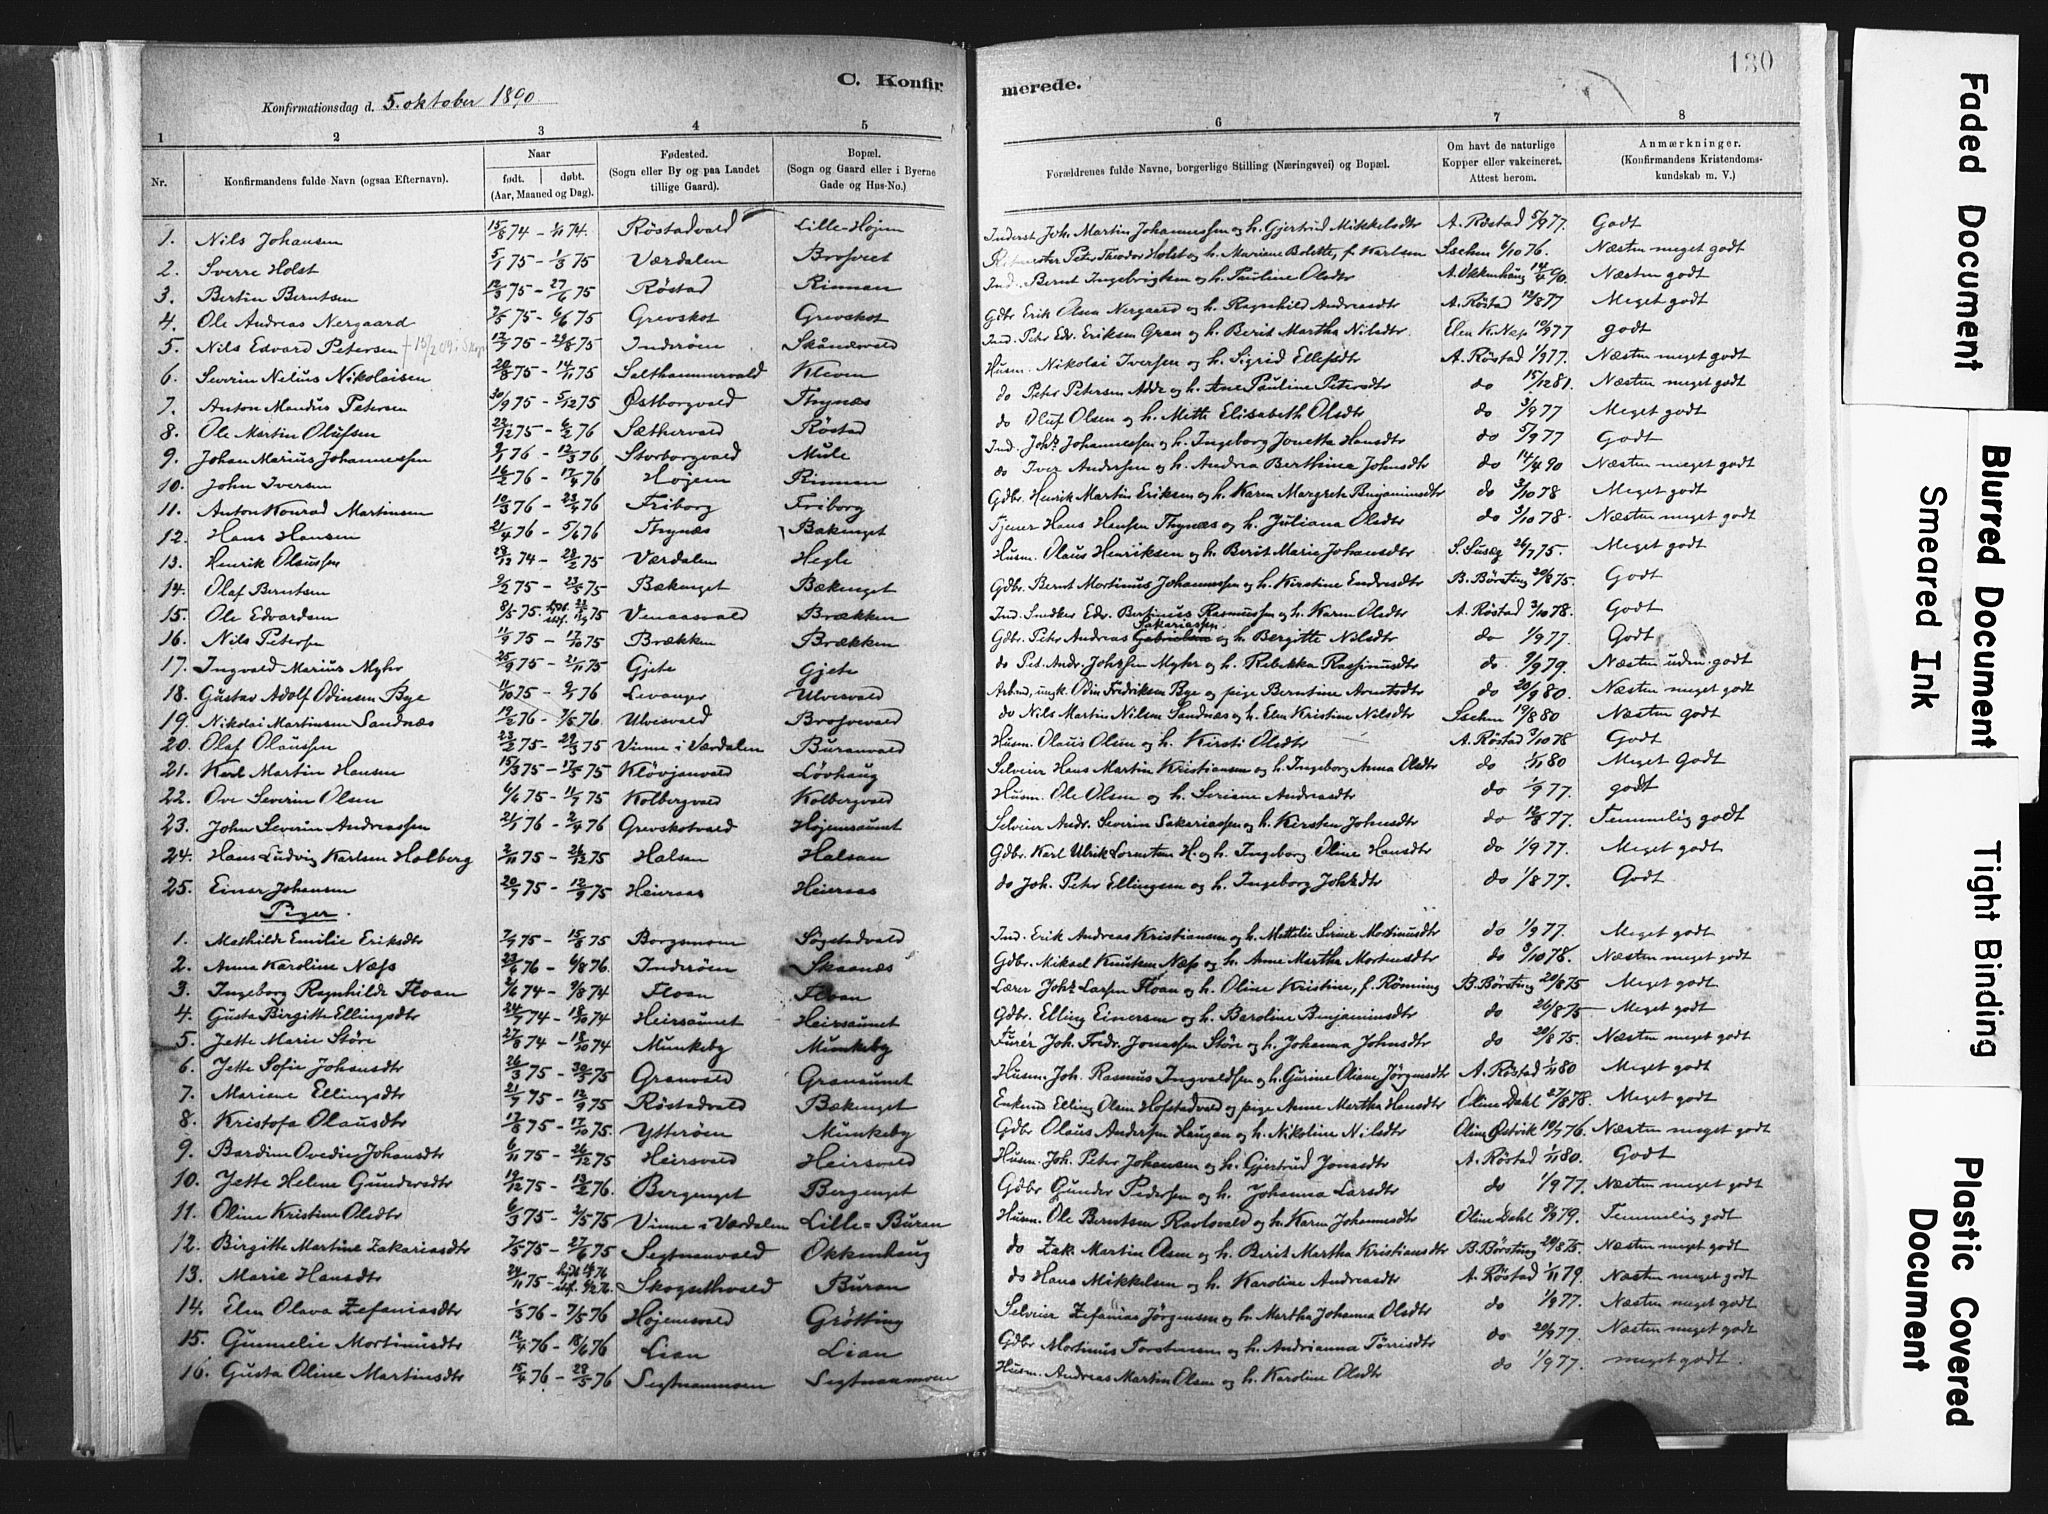 130
C. Konfirmerede.
Konfirmationsdag d. 5. oktober 1890
1 2 3 4 5 6 7 8
Nr. Konfirmandens fulde Navn (ogsaa Efternavn). Naar født. døbt. (Aar, Maaned og Dag). Fødested. (Sogn eller By og paa Landet tillige Gaard). Bopæl. (Sogn og Gaard eller i Byerne Gade og Hus-No.) Forældrenes fulde Navne, borgerlige Stilling (Næringsvei) og Bopæl. Om havt de naturlige Kopper eller vakcineret. Attest herom. Anmærkninger. (Konfirmandens Kristendomskundskab m. V.)
1. Nils Johansen 15/8 74 – 1/11 74. Røstadvald Lille-Højen Inderst Joh. Martin Johannessen og h. Gjertrud Mikkelsdtr A. Røstad 5/9 77. Godt
2. Sverre Holst 5/1 75 – 1/3 75 Værdalen Brosveet Peter Theodor Holst og h. Mariane Bolette, f. Karlsen 6/10 76. Næsten meget godt
3. Bertin Berntsen 12/3 75 – 27/6 75 Røstad Rinnan Ind. Bernt Ingebrigtsen og h. Pauline Olsdtr A. Okkenhaug 14/4 90. Næsten godt
4. Ole Andreas Nergaard 2/5 75 – 6/6 75 Grevskot Grevskot Gdbr Erik Olsen Nergaard og h. Ragnhild Andreasdtr A. Røstad 12/8 77 Meget godt
5. Nils Edvard Petersen 12/7 75 – 29/8 75 Inderøen Skånesvald Ind. Petr Edv. Eriksen Gran og h. Berit Martha Nilsdtr. Elen K. Næss 12/9 77 godt
6. Severin Nelius Nikolaisen 20/8 75 – 14/11 75 Salthammervald Kleven Husm. Nikolai Iversen og h. Sigrid Ellefsdtr A. Røstad 1/9 77. Næsten meget godt
7. Anton Mandus Petersen 30/9 75 – 5/12 75 Østborgvald Thynæs do Peter Petersen Adde og h. Ane Pauline Petersdtr do 15/12 81. Næsten meget godt
8. Ole Martin Olufsen 23/12 75 – 6/2 76 Sæthervald Røstad do Oluf Olsen og h. Mette Elisabeth Olsdtr do 3/9 77 Meget godt
9. Johan Marius Johannessen 9/1 76 – 12/3 76 Storborgvald Mule Ind. Johs. Johannessen og h. Ingeborg Jonetta Hansdtr do 5/9 77 Godt
10. John Iversen 16/2 76 – 17/4 76 Højem Rinnan do Iver Andersen og h. Andrea Berthina Johnsdtr do 14/4 90 Næsten meget godt
11. Anton Konrad Martinsen 10/3 76 – 23/4 76 Friborg Friborg Gdbr. Henrik Martin Eriksen og h. Karen Margrete Benjaminsdtr do 3/10 78 Meget godt
12. Hans Hansen 21/4 76 – 5/6 76 Thynæs Bakenget Tjener Hans Hansen Thynæs og h. Juliana Olsdtr do 3/10 78. Næsten meget godt
13. Henrik Olaussen 29/12 74 – 28/2 75 Værdalen Hegle Husm. Olaus Henriksen og h. Berit Marie Johansdtr 26/7 75. Meget godt
14. Olaf Berntsen 9/2 75 – 23/5 75 Bækenget Bækenget Gdbr Bernt Mortinus Johannessen og h. Kirstine Endresdtr B. Børsting 20/8 75. Godt
15. Ole Edvardsen 8/5 75. Venaasvald Brækken Ind. Snedker Edv. Bertinus Rasmussen og h. Karen Olsdtr A. Røstad 3/10 78. Godt
16. Nils Petersen 11/9 75 – 17/10 75 Brækken Brækken Gdbr. Petr Andreas Sakariassen og h. Bergitte Nilsdtr do 1/9 77. Godt
17. Ingvald Marius Myhr 25/9 75 – 21/11 75 Gjete Gjete do Pet. Andr. Johssen Myhr og h. Rebekka Rasmusdtr do 9/9 79. Næsten udm. godt
18. Gustav Adolf Odinsen Bye 11/10 75 – 9/1 76 Levanger Ulvesvald Arbmd, ungk. Odin Fredriksen Bye og pige Berntine Arntsdtr do 28/9 80. Næsten meget godt
19. Nikolai Martinsen Sandnæs 19/2 76 – 7/5 76. Ulvisvald Brosvevald do Nils Martin Nilsen Sandnæs og h. Elen Kristine Nilsdtr 19/8 80 Næsten godt
20. Olaf Olaussen 23/2 75 – 29/3 75 Vinne i Værdalen Buranvald Husm. Olaus Olsen og h. Kirsti Olsdtr A. Røstad 3/10 78 Godt
21. Karl Martin Hansen 15/3 75 – 17/5 75 Kløvjanvald Løvhaug Selveier Hans Martin Kristiansen og h. Ingeborg Anna Olsdtr do 1/11 80 Meget Godt
22. Ove Severin Olsen 6/6 75 – 11/7 75 Kolbergvald Kolbergvald Husm. Ole Olsen og h. Seriane Andreasdtr do 1/9 77. godt
23. John Severin Andreassen 21/1 76 – 2/4 76 Grevskotvald Højemsaunet Selveier Andr. Severin Sakariassen og h. Kersten Johnsdtr do 12/8 77. Temmelig godt
24. Hans Ludvig Karlsen Holberg 2/11 75 – 26/12 75 Halsen Halsan Gdbr. Karl Ulrik Lorntsen H. og h. Ingeborg Oline Hansdtr do 1/9 77. Meget godt
25. Einar Johansen 20/7 75 – 12/9 75 Heieraas Heieraas do Joh. Peter Ellingsen og h. Ingeborg Johsdtr do 1/8 77. Godt
Piger.
1. Mathilde Emilie Eriksdtr 7/7 75 – 15/8 75 Borgsmoen Søgstadvald Ind. Erik Andreas Kristiansen og h. Mettelie Serine Mortinusdtr do 1/9 77. Meget godt
2. Anna Karoline Næss 23/6 76 – 6/8 76. Inderøen Skaanæs Gdbr. Mikael Knutsen Næss og h. Anne Martha Mortensdtr do 3/10 78. Næsten meget godt
3. Ingeborg Ragnhilde Floan 2/6 74 – 9/8 74 Floan Floan Lærer Johs Larsen Floan og h. Oline Kristine, f. Rønning B. Børsting 20/8 75 Meget godt
4. Gusta Birgitte Ellingsdtr 24/7 74 – 18/10 74 Heirsaunet Heirsaunet Gdbr. Elling Einersen og h. Baroline Benjaminsdtr do 26/8 75 Meget godt
5. Jette Marie Støre 27/8 74 – 18/10 74 Munkeby Munkeby Furér Joh. Fredr. Jonassen Støre og h. Johanna Johnsdtr do 20/8 75. Næsten meget godt
6. Jette Sofie Johansdtr 26/3 75 – 30/5 75 Granvald Gransunet Husm. Joh. Rasmus Ingvaldsen og h. Gurine Oliane Jørgensdtr A. Røstad 1/11 80 Meget godt
7. Mariane Ellingsdtr 21/7 75 – 12/9 75 Røstadvald Bækenget Enkemd Elling Olsen Hofstadvald og pige Anne Martha Hansdtr Oline Dahl 27/8 78. Meget godt
8. Kristofa Olausdtr 17/8 75 – 17/10 75. Ytterøen Munkeby Gdbr Olaus Andersen Haugan og h. Nikoline Nilsdtr Oline Østvik 10/7 76. Næsten meget godt
9. Bardine Ovedie Johansdtr 6/11 75 – 26/12 75 Heirsvald Heirsvald Husm. Joh. Peter Johansen og h. Gjertrud Jonasdtr A. Røstad 1/11 80. Godt
10. Jette Helene Gundersdtr 19/12 75 – 13/2 76. Bergenget Bergenget Gdbr Gunder Pedersen og h. Johanna Larsdtr do 1/9 77. Næsten meget godt
11. Oline Kristine Olsdtr 6/3 75 – 2/5 75 Vinne i Værdalen Lille-Buran Husm. Ole Berntsen Ravlosvald og h. Karen Johannesdtr Oline Dahl 8/9 79. Temmelig godt
12. Birgitte Martine Zakariasdtr 7/5 75 – 27/6 75 Segtnanvald Okkenhaug do Zak. Martin Olsen og h. Berit Martha Kristiansdtr B. Børsting 20/8 75. Næsten meget godt
13. Marie Hansdtr 24/11 75 – Skogsethvald Buran do Hans Mikkelsen og h. Karoline Andreasdtr A. Røstad 1/11 79. Næsten meget godt
14. Elen Olava Zefaniasdtr 1/3 76 – 7/5 76 Højemsvald Grøtting Selveier Zefanias Jørgensen og h. Martha Johanna Olsdtr do 1/9 77. Næsten meget godt
15. Gunnelie Mortinusdtr 12/4 76 – 18/6 76 Lian Lian Gdbr Mortinus Torstensen og h. Andrianna Tørrisdtr do 20/9 77. Næsten meget godt
16. Gusta Oline Martinsdtr 15/4 76 – 28/5 76 Segtnanmoen Segtnaamoen Husm. Andreas Martin Olsen og h. Karoline Olsdtr do 1/9 77. meget godt.
Faded Document
Blurred Document
Smeared Ink
Tight Binding
Plastic Covered Document